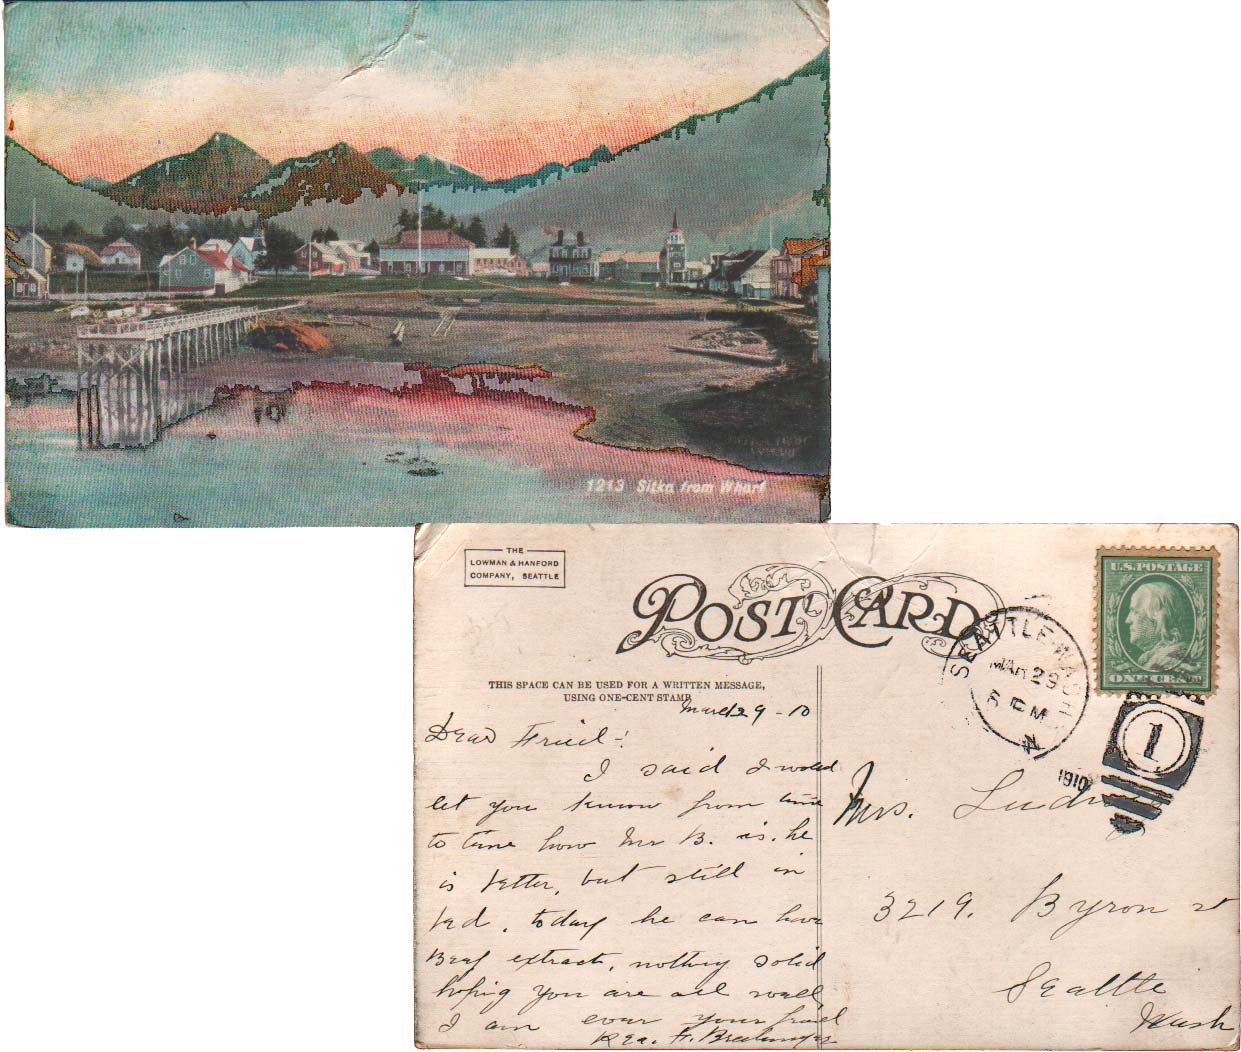 1213 Sitka from Wharf
THE
LOWMAN & HANFORD
COMPANY, SEATTLE
POST CARD
THIS SPACE CAN BE USED FOR A WRITTEN MESSAGE,
USING ONE-CENT STAMP
March 29-10
Dear Friend:
I said I would
let you know from time
to time how Mr B. is. he
is better, but still in
bed, today he can have
Beef extract, nothing solid
hoping you are all well,
I am ever your friend
F.
U.S. POSTAGE
ONE CENT
SEATTLE, WASH.
MAR 29
PM
N
1910
1
Mrs.
3219. Byron st
Seattle
Wash